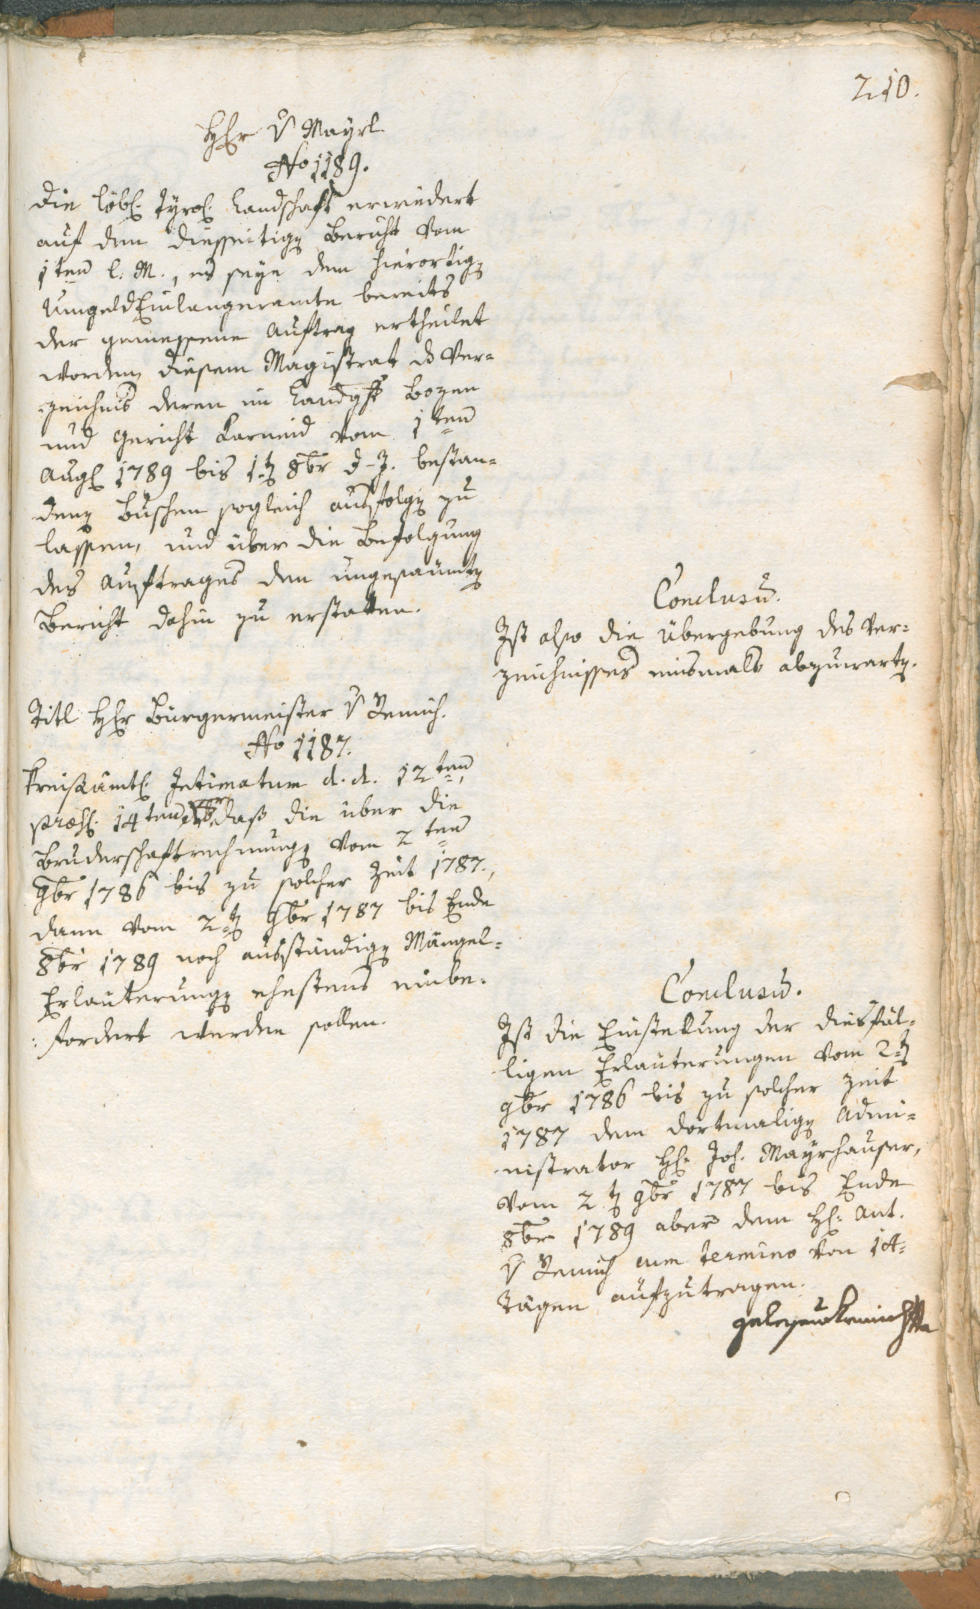 210.
Herr v Mayrl
No 1189.
Die löbl. Tyrol. Landschaft erwiedert
auf den diesseitigen Bericht vom
1ten l. M., es seye dem hierortigen
Umgeld Einlangeramte bereits
der gemessene Auftrag ertheilet
worden, diesem Magistrat das Ver-
zeichnis deren im Landgericht Bozen
und Gericht Karneid vom 1ten
Aug. 1789 bis 1ten 8br d. J. bestan-
denen Buschen sogleich ausfolgen zu
lassen, und über die Befolgung
des Auftrages den ungesäumten
Bericht dahin zu erstatten.
Conclusum.
Ist also die Übergebung des Ver-
zeichnisses einsmals abzuwarten.
Titl Herr Bürgermeister v Remich.
No 1187.
Kreisämtl. Intimatum d. d. 12ten,
præs. 14ten, daß die über die
Bruderschaftrechnungen vom 2ten
9br 1786 bis zu solcher Zeit 1787.,
dann vom 2ten 9br 1787 bis Ende
8br 1789 noch ausständigen Mängel-
Erläuterungen ehestens einbe-
fordert werden sollen.
Conclusum.
Ist die Einstellung der diesfäl-
ligen Erläuterungen vom 2ten
9br 1786 bis zu solcher Zeit
1787 dem dortmaligen Admi-
nistrator H. Joh. Mayrhauser,
vom 2ten 9br 1787 bis Ende
8br 1789 aber dem H. Ant.
v Remich cum termino von 14
Tägen aufzutragen.